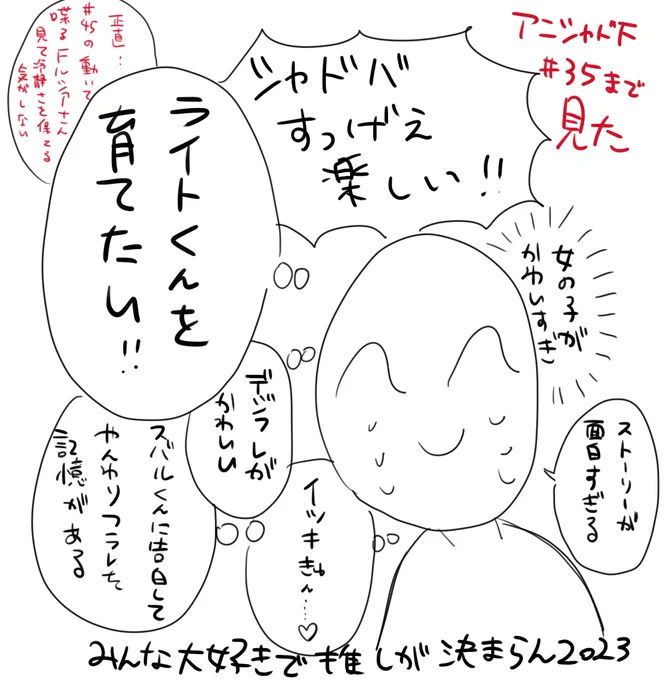 アニシャドF
#35まで
見た
シャドバ
すっげえ
楽しい!!
正直…
#45の動いて
喋るFルシアさん
見て冷静さを保てる
気がしない
ライトくんを
育てたい!!
女の子が
かわいすぎ
デジフレが
かわいい
ストーリーが
面白すぎる
スバルくんに告白して
やんわりフラれた
記憶がある
イツキきゅん……♡
みんな大好きで推しが決まらん2023